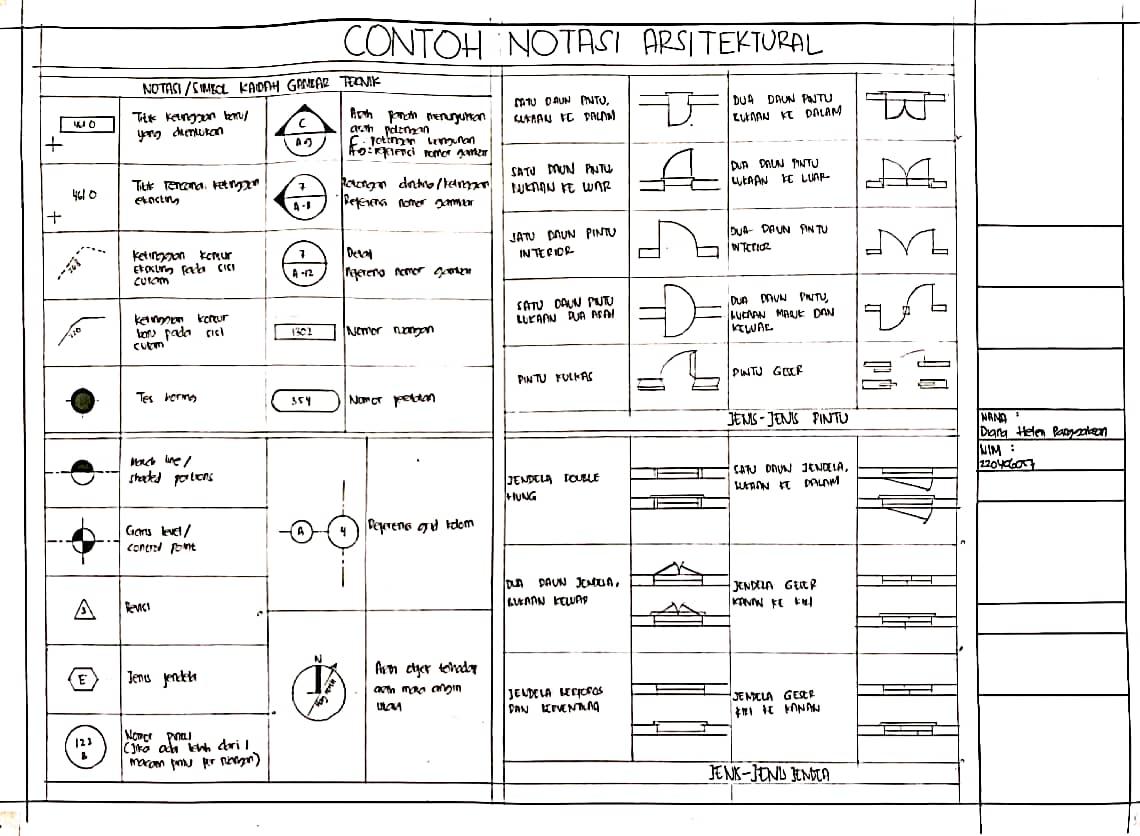 CONTOH NOTASI ARSITEKTURAL
NOTASI/SIMBOL KAIDAH GAMBAR TEKNIK
4610
Titik ketinggian baru/
yang ditentukan
C
A9
Arah panah menunjukkan
arah potongan
C = potongan bangunan
A9 = referensi nomor gambar
4610
Titik rencana, ketinggian
eksisting
7
A-8
Potongan dinding/ketinggian
Referensi nomor gambar
Ketinggian kontur
eksisting pada sisi
curam
7
A-12
Detail
Referensi nomor gambar
320
ketinggian kontur
baru pada sisi
curam
1302
Nomor ruangan
Tes boring
354
Nomor peralatan
Match line/
shaded portions
Garis level/
control point
A
4
Referensi grid kolom
3
Revisi
E
Jenis jendela
N
Arah objek terhadap
arah mata angin
utara
123
B
Nomor pintu
(Jika ada lebih dari 1
macam pintu per ruangan)
SATU DAUN PINTU,
BUKAAN KE DALAM
DUA DAUN PINTU
BUKAAN KE DALAM
SATU DAUN PINTU
BUKAAN KE LUAR
DUA DAUN PINTU
BUKAAN KE LUAR
SATU DAUN PINTU
INTERIOR
DUA DAUN PINTU
INTERIOR
SATU DAUN PINTU
BUKAAN DUA ARAH
DUA DAUN PINTU,
BUKAAN MASUK DAN
KELUAR
PINTU KULKAS
PINTU GESER
JENIS-JENIS PINTU
JENDELA DOUBLE
HUNG
SATU DAUN JENDELA,
BUKAAN KE DALAM
DUA DAUN JENDELA,
BUKAAN KELUAR
JENDELA GESER
KANAN KE KIRI
JENDELA
DAN
JENDELA GESER
KIRI KE KANAN
JENIS-JENIS JENDELA
NAMA :
Diana Helen
NIM :